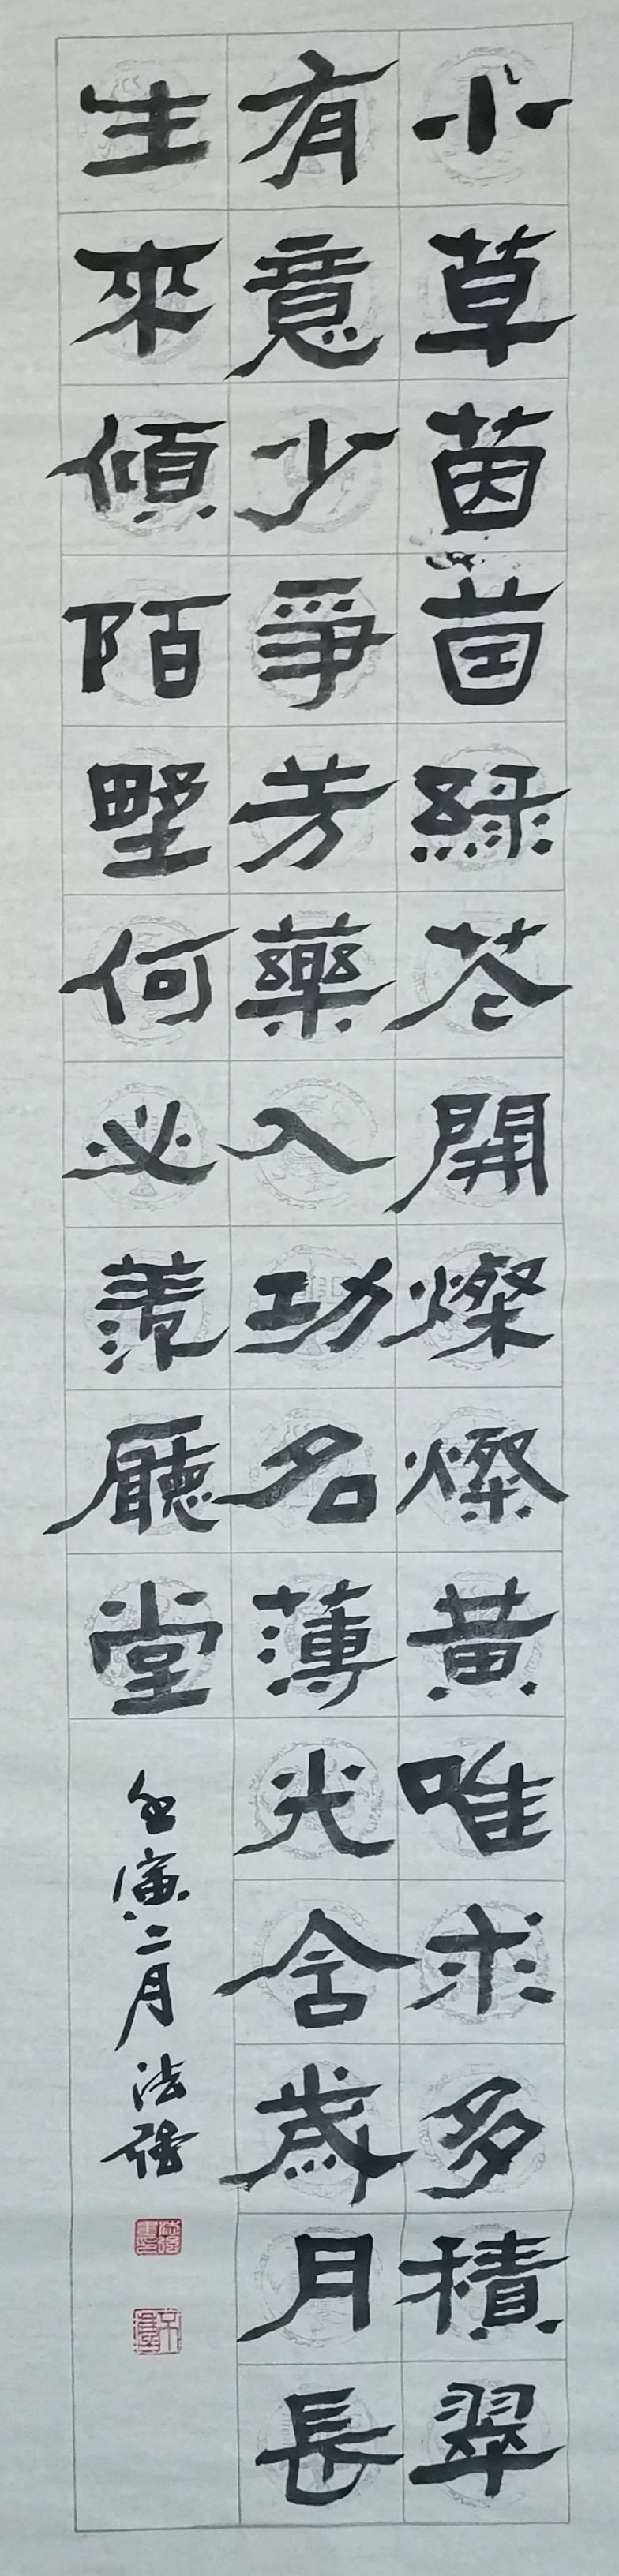 小草茵茵綠花開燦燦黃唯求多積翠
有意少爭芳藥入功名薄光含歲月長
生來傾陌野何必羨廳堂
壬寅二月法強